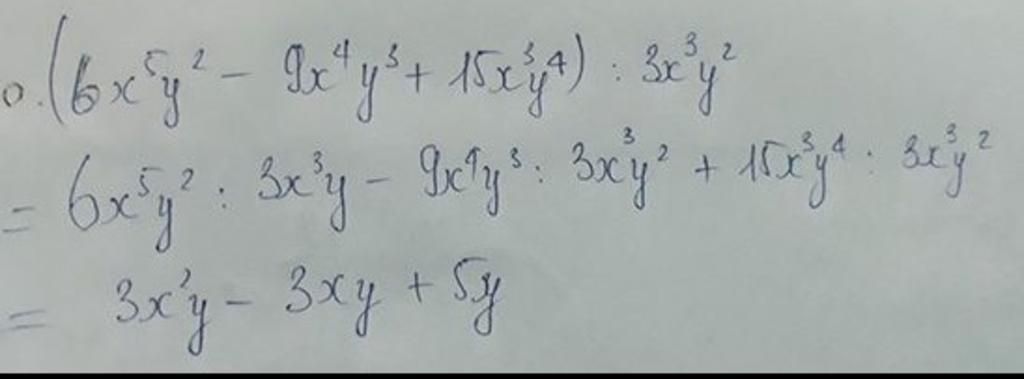 o. (6x⁵y² − 9x⁴y³ + 15x³y⁴) : 3x³y²
= 6x⁵y² : 3x³y − 9x⁴y³ : 3x³y² + 15x³y⁴ : 3x³y²
= 3x²y − 3xy + 5y